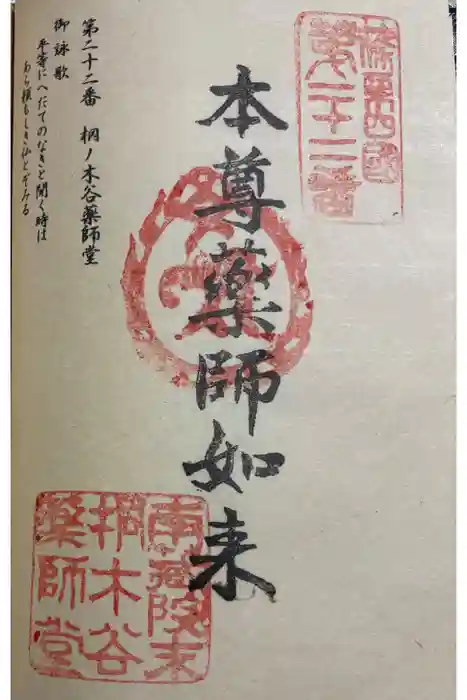 篠栗四国
第二十二番
本尊薬師如来
第二十二番 桐ノ木谷薬師堂
御詠歌
平等にへだてのなきと聞く時は
あら頼もしき仏とぞみる
南蔵院末
桐木谷
薬師堂